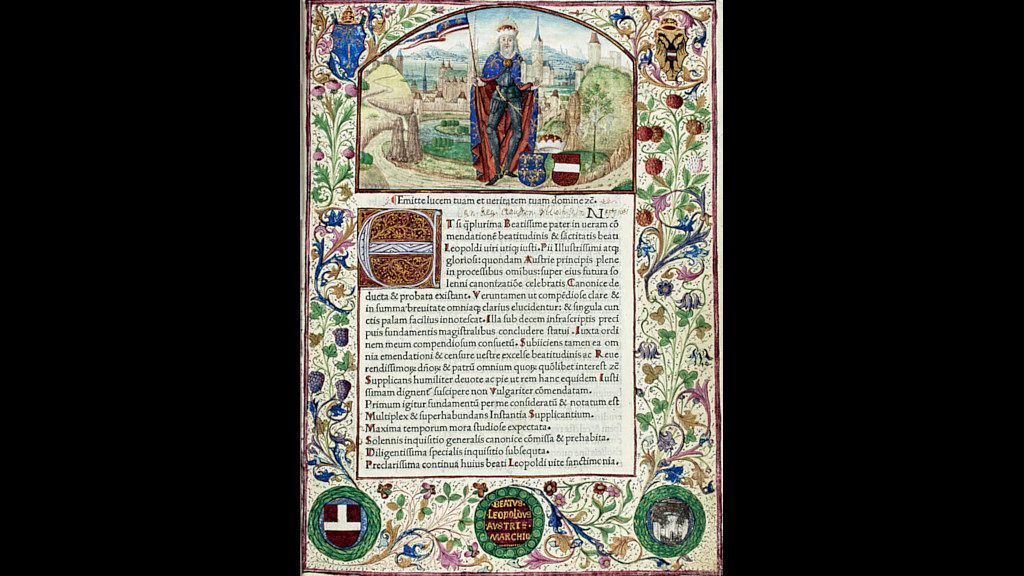 Emitte lucem tuam et ueritatem tuam domine zc̄.
N
ETsi q̄plurima Beatissime pater in ueram cō
mendationē beatitudinis & sāctitatis beati
Leopoldi uiri utiqꝫ iusti. Pii Illustrissimi atqꝫ
gloriosi: quondam Austrie principis plene
in processibus om̄ibus: super eius futura so
lenni canonizatiōe celebratis Canonice de
ducta & probata existant. Veruntamen ut compēdiose clare &
in summa breuitate omniaqꝫ clarius elucidentur: & singula cun
ctis palam facilius innotescat. Illa sub decem infrascriptis preci
puis fundamentis magistralibus concludere statui. Iuxta ordi
nem meum compendiosum consuetū. Subiiciens tamen ea om
nia emendationi & censure uestre excelse beatitudinis ac Reue
rendissimoꝝ dn̄oꝝ & patrū omnium quoꝝ quōlibet interest zc̄
Supplicans humiliter deuote ac pie ut rem hanc equidem Iusti
ssimam dignent᷑ suscipere non Vulgariter cōmendatam.
Primum igitur fundamentū per me consideratū & notatum est
Multiplex & superhabundans Instantia Supplicantium.
Maxima temporum mora studiose expectata.
Solennis inquisitio generalis canonice cōmissa & prehabita.
Diligentissima specialis inquisitio subsequta.
Preclarissima continua huius beati Leopoldi uite sanctimonia.
BEATVS
LEOPOLDVS
AVSTRIE
MARCHIO